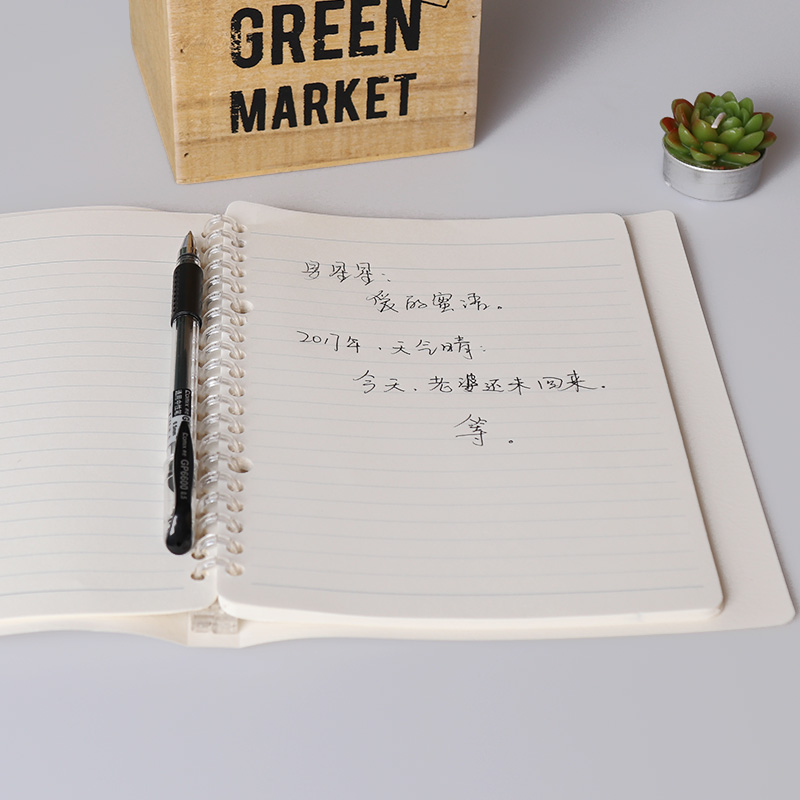 GREEN
MARKET
星星:
爱的蜜语。
2017年.天气晴:
今天.老婆还未回来.
等。
GP6600 0.5